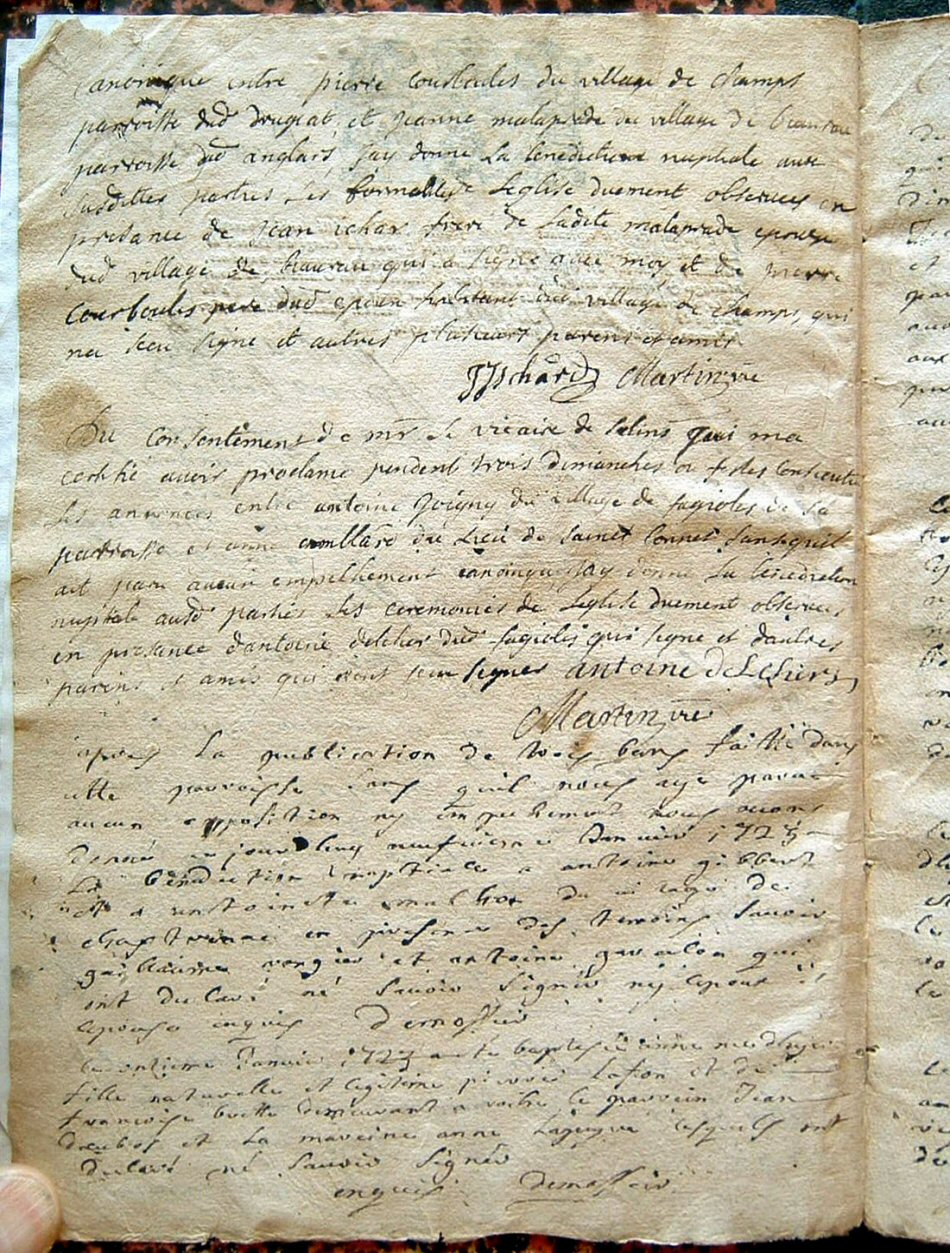 canonique entre pierre Courboules du village de champs
parroisse dud drugeat, et Jeanne malaprade du village de
parroisse dud anglars, Jay donne La benediction nuptiale aux
susdittes parties Les formalites Leglise duement observees en
presance de Jean ichar frere de Ladite malaprade epouse
dud village de qui a signe avec moy et de
Courboules pere dud epoux habitant du village de champs, qui
na sceu signe et autres plusieurs parens et amis
Ichard Martin vre
Du Consentement de mr Le vicaire de salins qui ma
certifié avoir proclame pendent trois dimanches ou festes
les annonces entre antoine du village de fagioles de sa
parroisse et anne du Lieu de sainct bonnet sans quil
ait paru aucun empechement canonique Jay donne La benediction
nuptiale aud parties Les ceremonies de Leglise duement observees
en presance dantoine delcher dud fagioles qui signe et dautres
parens et amis qui nont sceu signer antoine
Martin vre
apres La publication de trois bans faitte dans
cette parroisse sans quil nous aye paru
aucun opposition ny empechement nous avons
donné ce jourdhuy neufvieme Janvier 1723
La benediction nuptiale a antoine gibbert
et a antoinette du village de
en presence des temoins savoir
guillaume et antoine qui
ont declaré né savoir signer ny lepoux ni
lepouse enquis Demossier
le onzieme Janvier 1723 a eté baptisée anne
fille naturelle et legitime pierre Lafon et de
francoise demeurant a le parrein Jean
et La mareine anne lesquels ont
declaré né savoir signér
enquis demossier